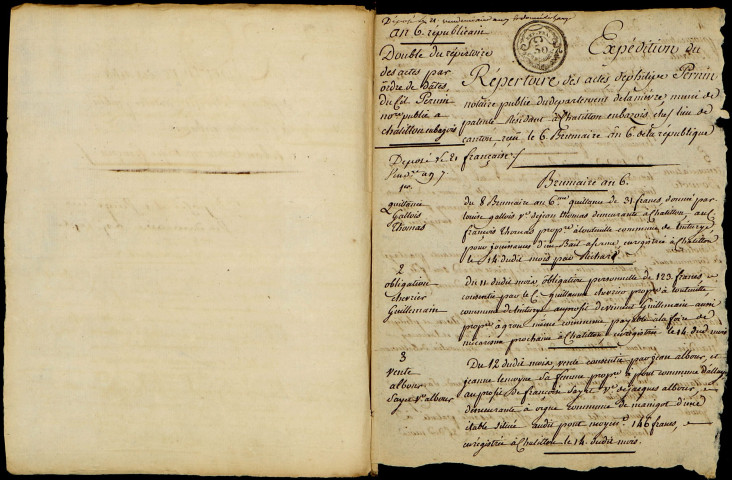 an 6. républicain
Double du répertoire
des actes par
ordre de dates,
du Cit. Perrin
no.re public a
chatillon en bazois
Deposé le 21
an 7
Expédition du
Répertoire des actes de philipe Perrin
notaire public du departement de la nievre, muni de
patente Residant à Chatillon en bazois chef lieu de
canton reçu le 6. Brumaire an 6. de la republique
française
Brumaire an 6.
quittance
Gallois
Thomas
du 8 Brumaire an 6.me quittance de 31 francs, donnée par
louise gallois v.e de jean thomas demeurante à Chatillon, au C.
françois thomas prop.re à commune de
pour jouissances d'un Bail a ferme, enregistrée à Chatillon
le 14 dudit mois par Richard
2
obligation
chevrier
Guillemain
du 11 dudit mois obligation personnelle de 123 francs
consentie par le C. guillaume chevrier prop.re à
commune de au profit de vincent Guillemain aussi
prop.re à grou même commune payable a la foire de
prochaine à Chatillon enregistrée le 14 dud. mois
3
vente
albour
Sayet v.e albour
Du 12 dudit mois, vente consentie par jean albour, et
jeanne lemoyne sa femme prop.re à pont commune d'alluy
au profit de françoise Sayet v.e de jacques albour,
demeurante à commune de d'une
étable située audit pont moyen.t 146 francs,
enregistrée à Chatillon le 14 dudit mois.